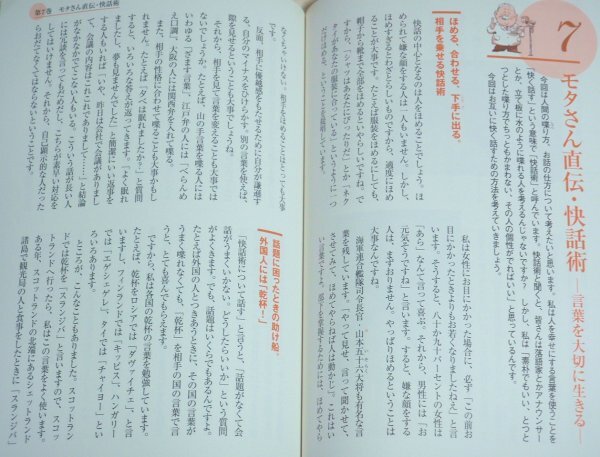 7
モタさん直伝・快話術
―言葉を大切に生きる―
今回は人間の喋り方、お話の仕方について考えたいと思います。私は人を幸せにする言葉を使うことを
「快く話す」という意味で「快話術」と呼んでいます。快話術と聞くと、皆さんは落語家とかアナウンサー
とか、立て板に水のように喋れる人を考えるんじゃないですか? しかし、私は「素朴でもいい、とつと
つとした喋り方でちっともかまわない、その人の個性がでればいい」と思っているんです。
今回はお互いに快く話すための方法を考えていきましょう。
ほめる、合わせる、下手に出る、
相手を乗せる快話術
快話の中心となるのは人をほめることでしょう。ほ
められて嫌な顔をする人は一人もいません。しかし、
ほめすぎるとわざとらしいものですから、適度にほめ
ることが大事です。たとえば服装をほめるにしても、
帽子から靴まで全部をほめるといやらしいですね。で
すから、「シャツはあなたにぴったりだ」とか「ネク
タイがあなたの服装に合っている」というように一つ
私は女性にお目にかかった場合に、必ず「この前お
目にかかったときよりもお若くなりましたねえ」と言
います。そうすると、八十か九十パーセントの女性は
「あら」なんて言って喜ぶ。それから、男性には「お
元気そうですね」と言います。すると、嫌な顔をする
人は、まずおりません。やっぱりほめるということは
大事なんですね。
海軍連合艦隊司令長官・山本五十六大将も有名な言
葉を残しています。「やって見せ、言って聞かせて、
させてみて、ほめてやらねば人は動かじ」。これはい
い言葉ですよ。部下を掌握するためには、ほめてやら
第7巻 モタさん直伝・快話術
なくちゃいけない。相手をほめることはとっても大事
反面、相手に優越感をもたせるために自分が謙遜す
る、自分のマイナスをひけらかす。別の言葉を使えば、
隙を見せるということも大事でしょうね。
それから、相手を見て言葉を変えることも大事じゃ
ないでしょうか。たとえば、山の手言葉を喋る人には
いわゆる「ざぁます言葉」、江戸弁の人には「べらんめ
え口調」、大阪の人には関西弁を入れて喋る。
また、相手の性格に合わせて喋ることも大事かもし
れません。たとえば「夕べは眠れましたか?」と質問
すると、いろいろな答えが返ってきます。「よく眠れ
ましたし、夢も見ませんでした」と簡潔にいい返事を
する人もいれば、「いや、昨日は会社で会議がありまし
て、会議の内容はこれこれでありまして……」と結論
がなかなかでてこない人もいる。こういう話が長い人
には冗談を言ってもだめだし、こちらが素早い対応を
してはいけません。それから、自己顕示的な人だった
らおだてなくてはならないとか、いろいろあります。
話題に困ったときの助け船、
外国人には「乾杯!」
「快話術について話す」と言うと、「話題がなくて会
話がうまくいかない。どうしたらいいか」という質問
がよくきます。でも、話題はいくらでもあるんですよ。
たとえば外国の人とつきあうときに、その国の言葉が
うまく喋れなくても、「乾杯」を相手の国の言葉で言
うと、とても喜んでもらえます。
ですから、私は各国の乾杯の言葉を勉強しています。
たとえば、乾杯をロシアでは「ダヴァイチェ」、と言
いますし、フィンランドでは「キッピス」、ハンガリー
では「エゲシェゲレ」、タイでは「チャイヨー」とい
ろいろあります。
ところが、こんなこともありました。スコットラン
ドでは乾杯を「スランジバ」と言いますので、スコッ
トランドへ行ったら、私はこの言葉をよく使います。
ある年、スコットランドの北端にあるシェットランド
諸島で観光局の人と食事をしたときに「スランジバ」